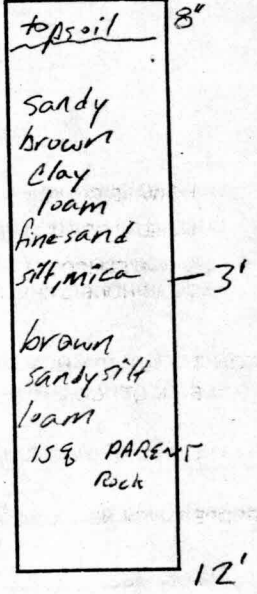 topsoil 8"
sandy
brown
clay
loam
fine sand
silt, mica — 3'
brown
sandy silt
loam
15% PARENT
Rock
12'